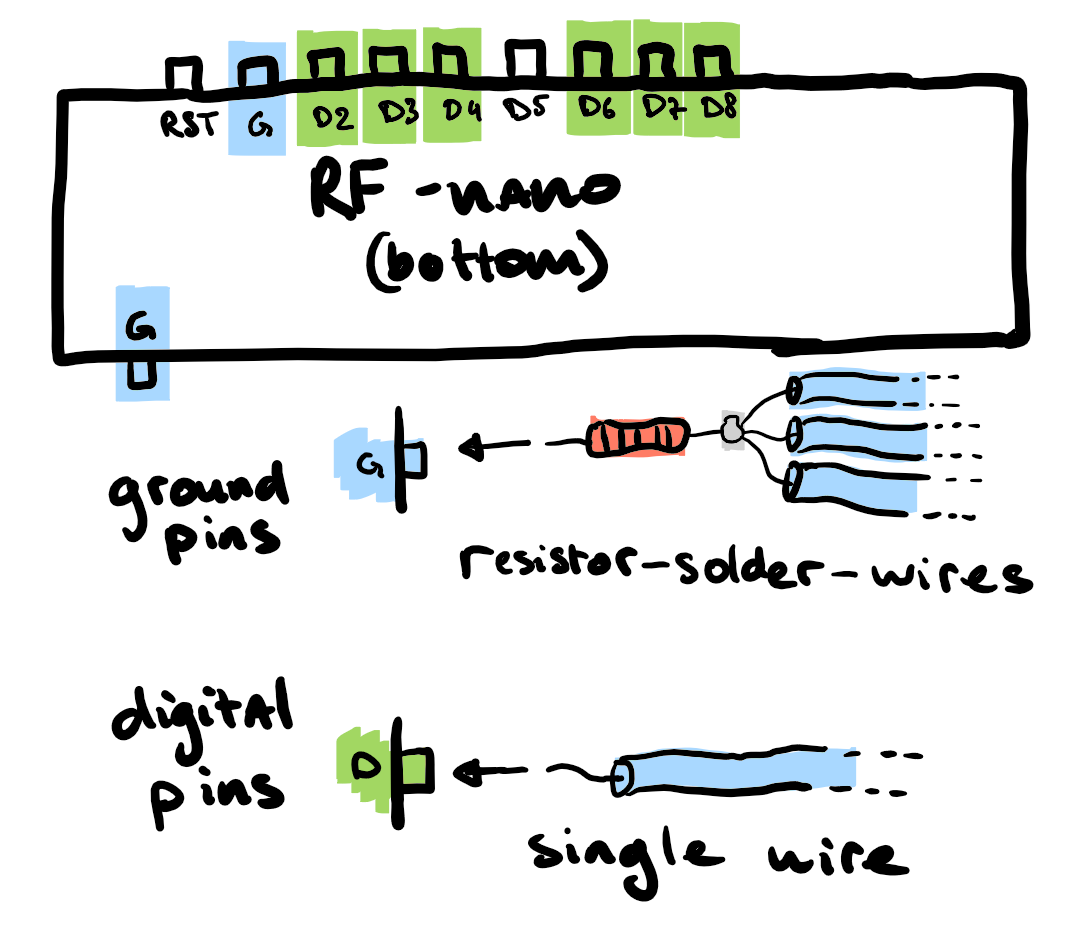 RST G D2 D3 D4 D5 D6 D7 D8
RF-nano
(bottom)
G
G
ground
pins
resistor-solder-wires
digital
pins
D
single wire